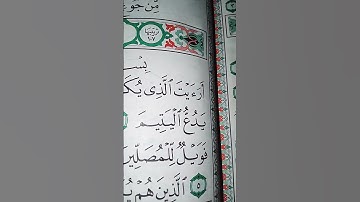 مِّن جُوعٍ
بِسْ
أَرَءَيْتَ ٱلَّذِى يُكَ
يَدُعُّ ٱلْيَتِيمَ
فَوَيْلٌ لِّلْمُصَلِّينَ
٥ ٱلَّذِينَ هُمْ يُ